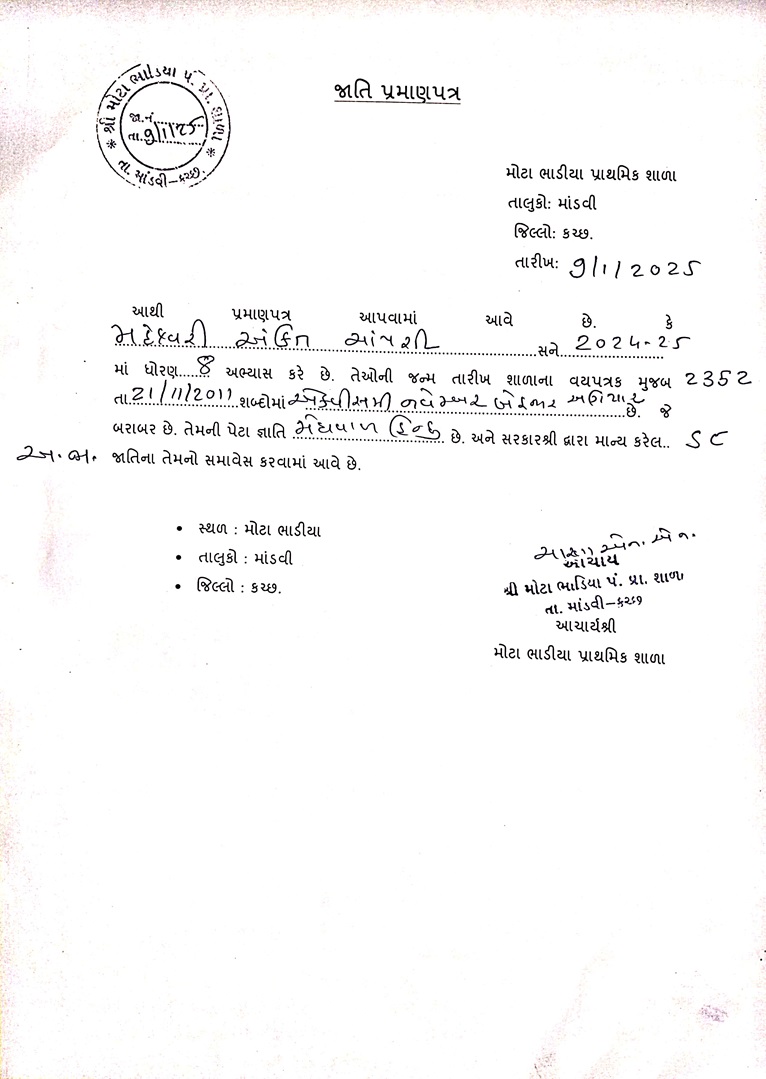 શ્રી મોટા ભાડિયા પં. પ્રા. શાળા
જા.નં.
તા.9/1/25
તા. માંડવી-કચ્છ.
જાતિ પ્રમાણપત્ર
મોટા ભાડીયા પ્રાથમિક શાળા
તાલુકો: માંડવી
જિલ્લો: કચ્છ.
તારીખ: 9/1/2025
આથી પ્રમાણપત્ર આપવામાં આવે છે. કે
મહેશ્વરી અંકિત સને 2024-25
માં ધોરણ 8 અભ્યાસ કરે છે. તેઓની જન્મ તારીખ શાળાના વયપત્રક મુજબ 2352
તા.21/11/2011 શબ્દોમાં એકવીસમી નવેમ્બર બેહજાર અગિયાર છે. જે
બરાબર છે. તેમની પેટા જ્ઞાતિ મેઘવાળ હિન્દુ છે. અને સરકારશ્રી દ્વારા માન્ય કરેલ.. SC
અ.જા. જાતિના તેમનો સમાવેસ કરવામાં આવે છે.
• સ્થળ : મોટા ભાડીયા
• તાલુકો : માંડવી
• જિલ્લો : કચ્છ.
એન. એન.
આચાર્ય
શ્રી મોટા ભાડિયા પં. પ્રા. શાળા
તા. માંડવી-કચ્છ
આચાર્યશ્રી
મોટા ભાડીયા પ્રાથમિક શાળા